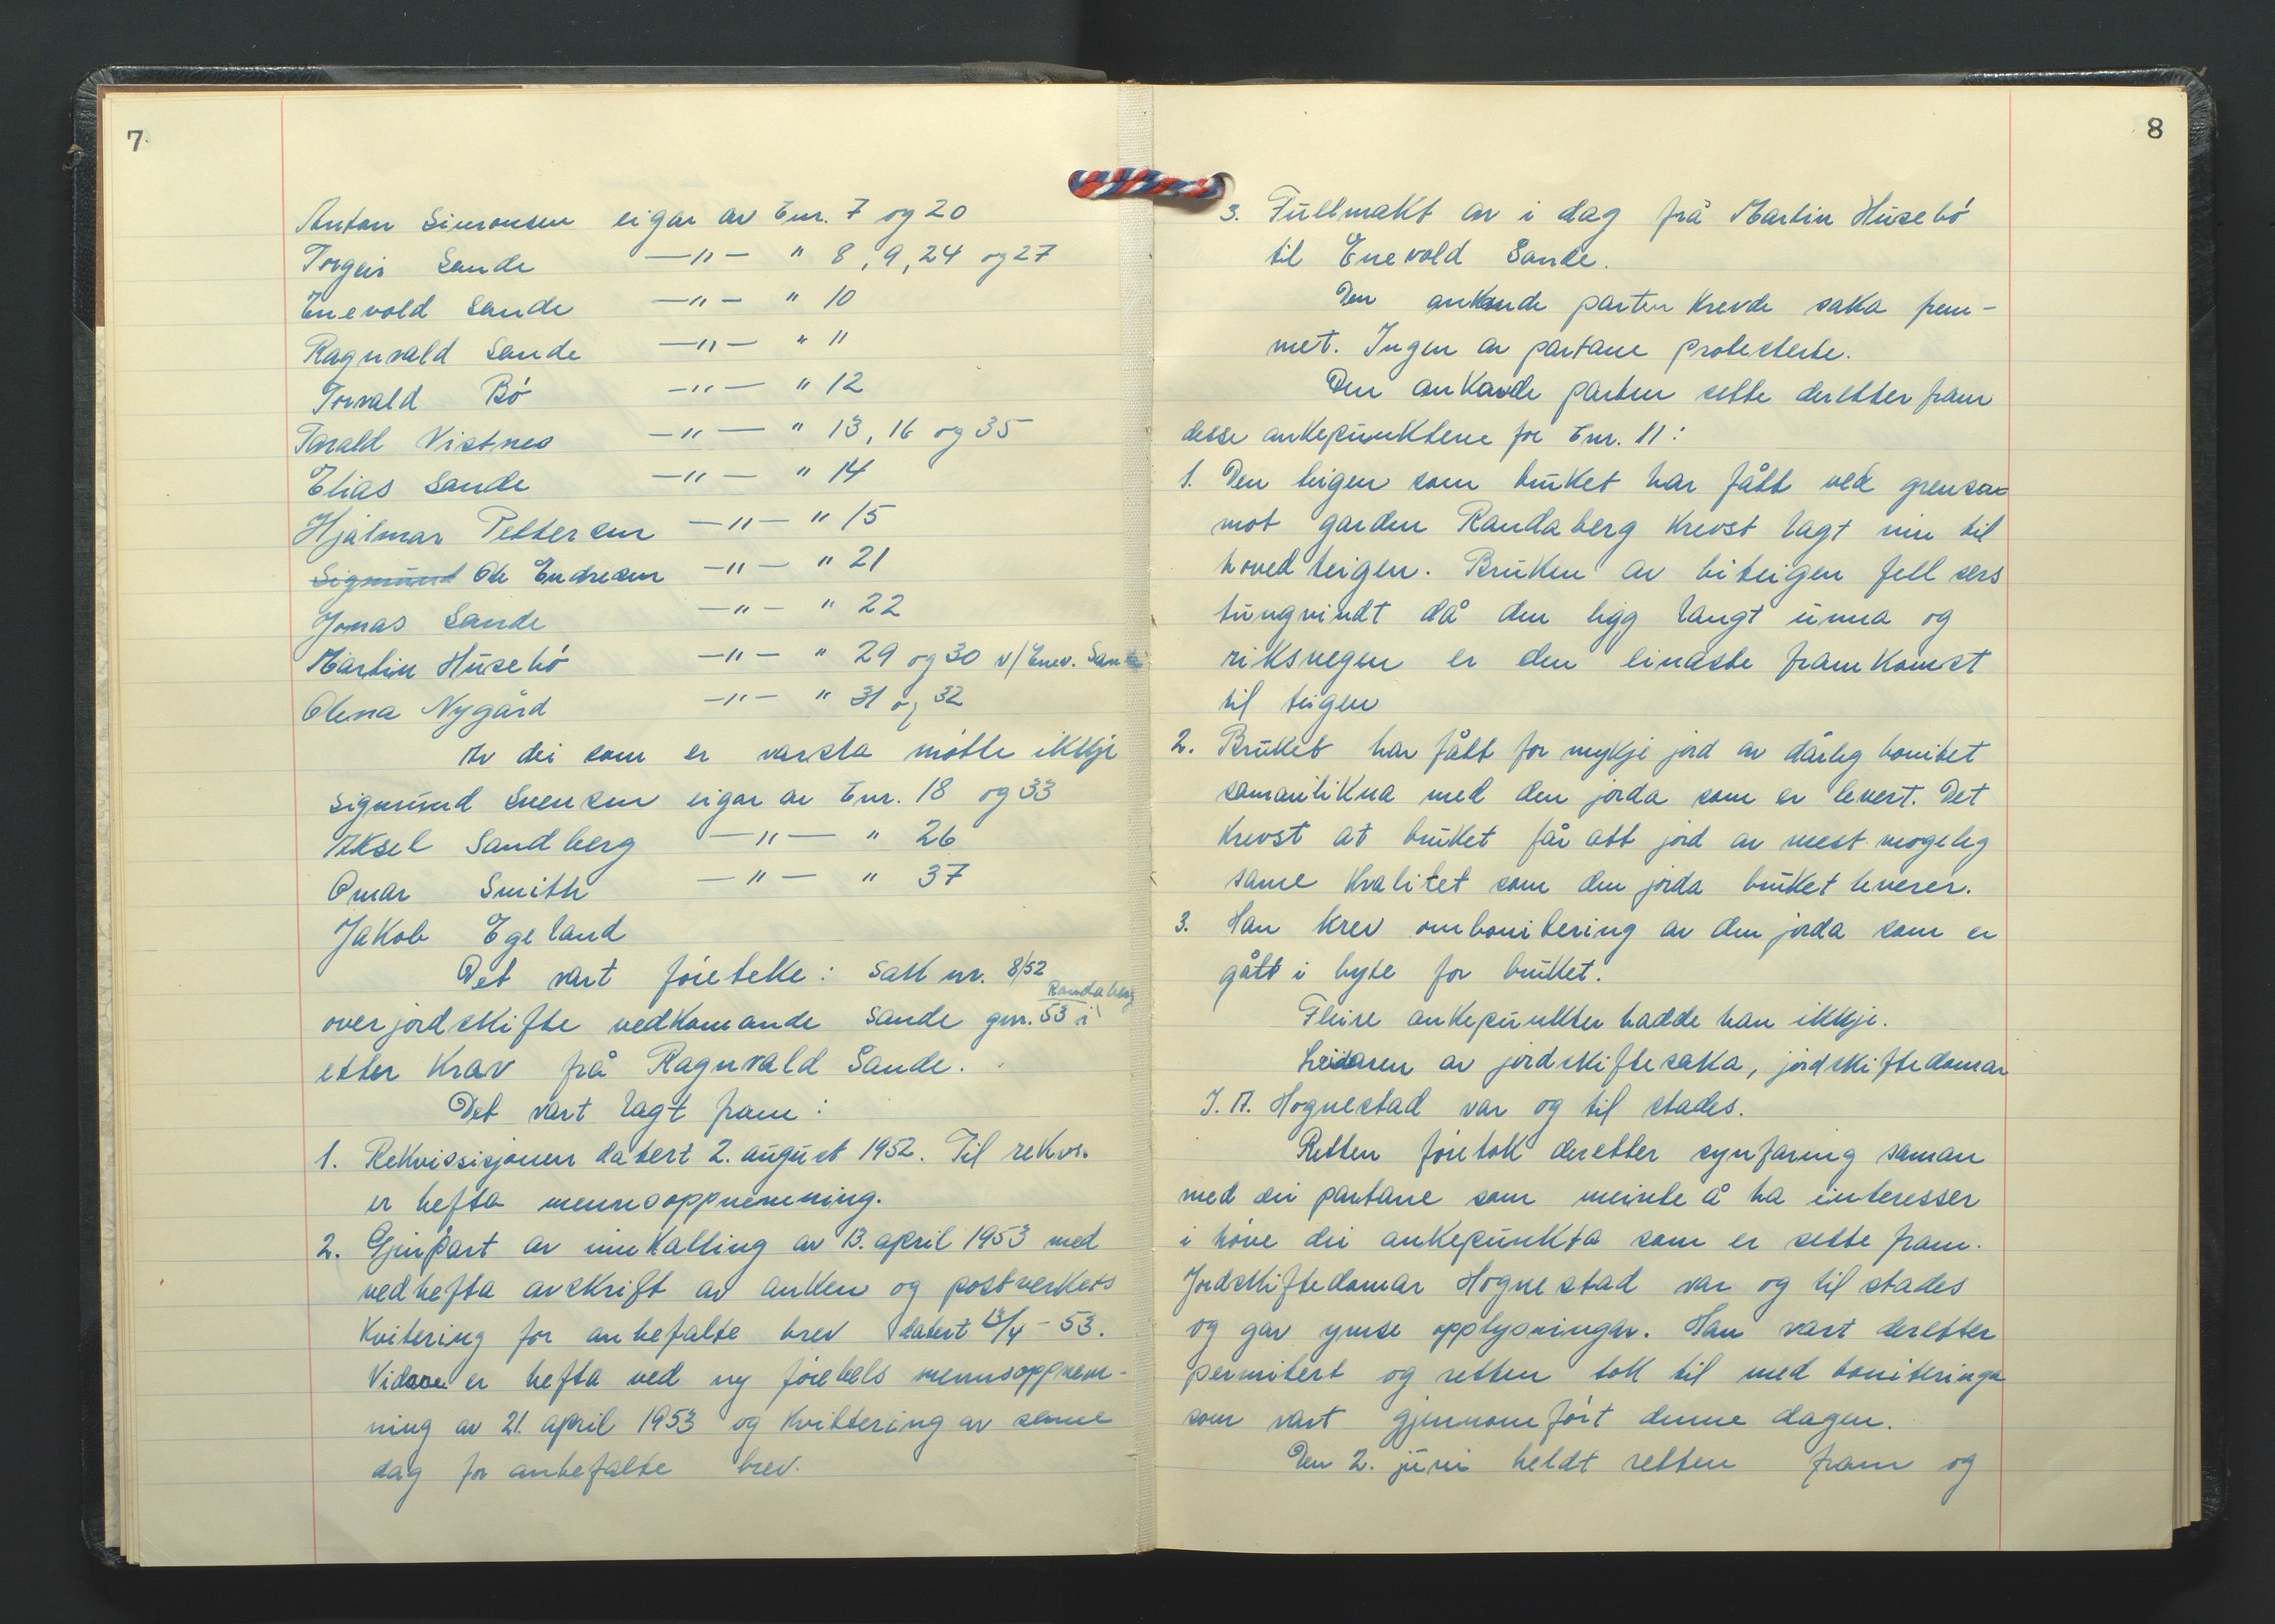 7.
Anton Simonsen eigar av bnr. 7 og 20
Torgeir Sande —"— " 8, 9, 24 og 27
Enevold Sande —"— " 10
Ragnvald Sande —"— " 11
Torvald Bö —"— " 12
Tarald Vistnes —"— " 13, 16 og 35
Elias Sande —"— " 14
Hjalmar Pettersen —"— " 15
Sigmund Ole Endresen —"— " 21
Jonas Sande —"— " 22
Martin Husebö —"— " 29 og 30 v/Enev. Sande
Olena Nygård —"— " 31 og 32
Av dei som er varsla mötte ikkje
Sigmund Svensen eigar av bnr. 18 og 33
Aksel Sandberg —"— " 26
Omar Smith —"— " 37
Jakob Egeland
Det vart företeke: Sak nr. 8/52
Randaberg
overjordskifte vedkomande Sande gnr. 53 i
etter krav frå Ragnvald Sande.
Det vart lagt fram:
1. Rekvissisjonen datert 2. august 1952. Til rekvs.
er hefta mennsoppnemning.
2. Gjenpart av innkalling av 13. april 1953 med
vedhefta avskrift av anken og postverkets
kvitering for anbefalte brev datert 13/4 - 53.
Vidare er hefta ved ny förebels mennsoppnem-
ning av 21. april 1953 og kvittering av same
dag for anbefalte brev.
8
3. Fullmakt av i dag frå Martin Husebö
til Enevold Sande.
Den ankande parten krevde saka frem-
met. Ingen av partane protesterte.
Den ankande parten sette deretter fram
desse ankepunktene for bnr. 11:
1. Den teigen som bruket har fått ved grensen
mot garden Randaberg krevst lagt inn til
hovedteigen. Bruken av biteigen fell sers
tungvindt då den ligg langt unna og
riksvegen er den einaste framkomst
til teigen
2. Bruket har fått for mykje jord av dårleg bonitet
samanlikna med den jorda som er levert. Det
krevst at bruket får att jord av mest mogeleg
same kvalitet som den jorda bruket leverer.
3. Han krev ombonitering av den jorda som er
gått i byte for bruket.
Fleire ankepunkter hadde han ikkje.
Leidaren av jordskiftesaka, jordskiftedomar
J. A. Hognestad var og til stades.
Retten företok deretter synfaring saman
med dei partane som meinte å ha interesser
i höve dei ankepunkta som er sette fram.
Jordskiftedomar Hognestad var og til stades
og gav ymse opplysningar. Han vart deretter
permitert og retten tok til med boniteringa
som vart gjennomfört denne dagen.
Den 2. juni heldt retten fram og